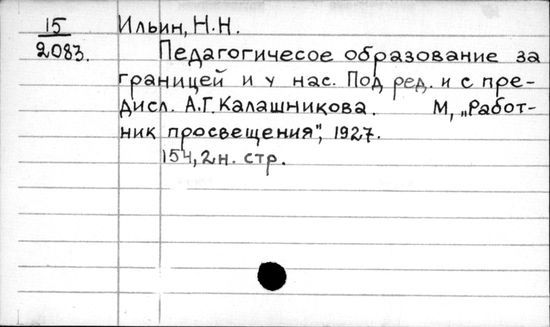 15 Ильин, Н.Н.
2083. Педагогичесое образование за
границей и у нас. Под ред. и с пре-
дисл. А.Г. Калашникова. М, „Работ-
ник просвещения", 1927.
154, 2 н. стр.